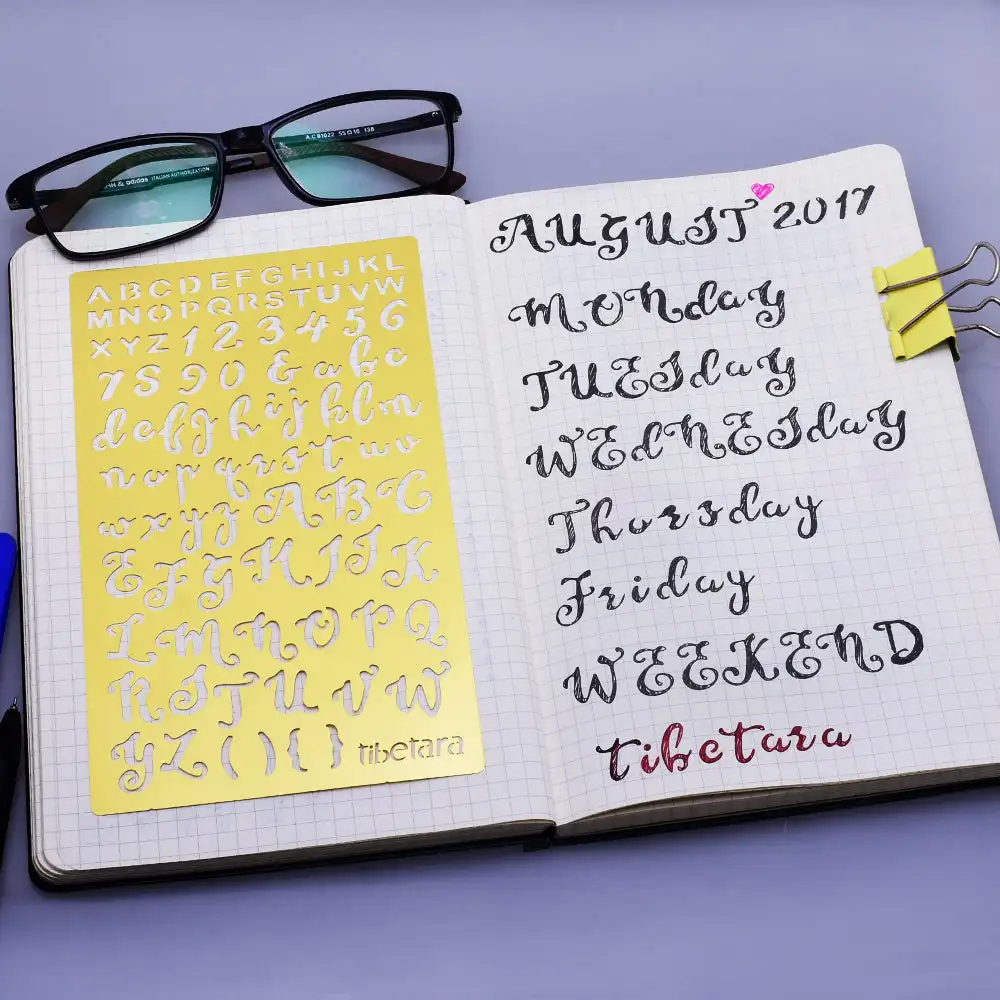 & adidas ITALIAN AUTHORIZATION
A.C 81022 55 16 138
A B C D E F G H I J K L
M N O P Q R S T U V W
X Y Z 1 2 3 4 5 6
7 8 9 0 & a b c
d e f g h i j k l m
n o p q r s t u v
w x y z A B C
E F G H I J K
L M N O P Q
R S T U V W
Y Z ( ) { } tibetara
AUGUST 2017
MONday
TUESday
WEdNESday
Thursday
Friday
WEEKEND
tibetara